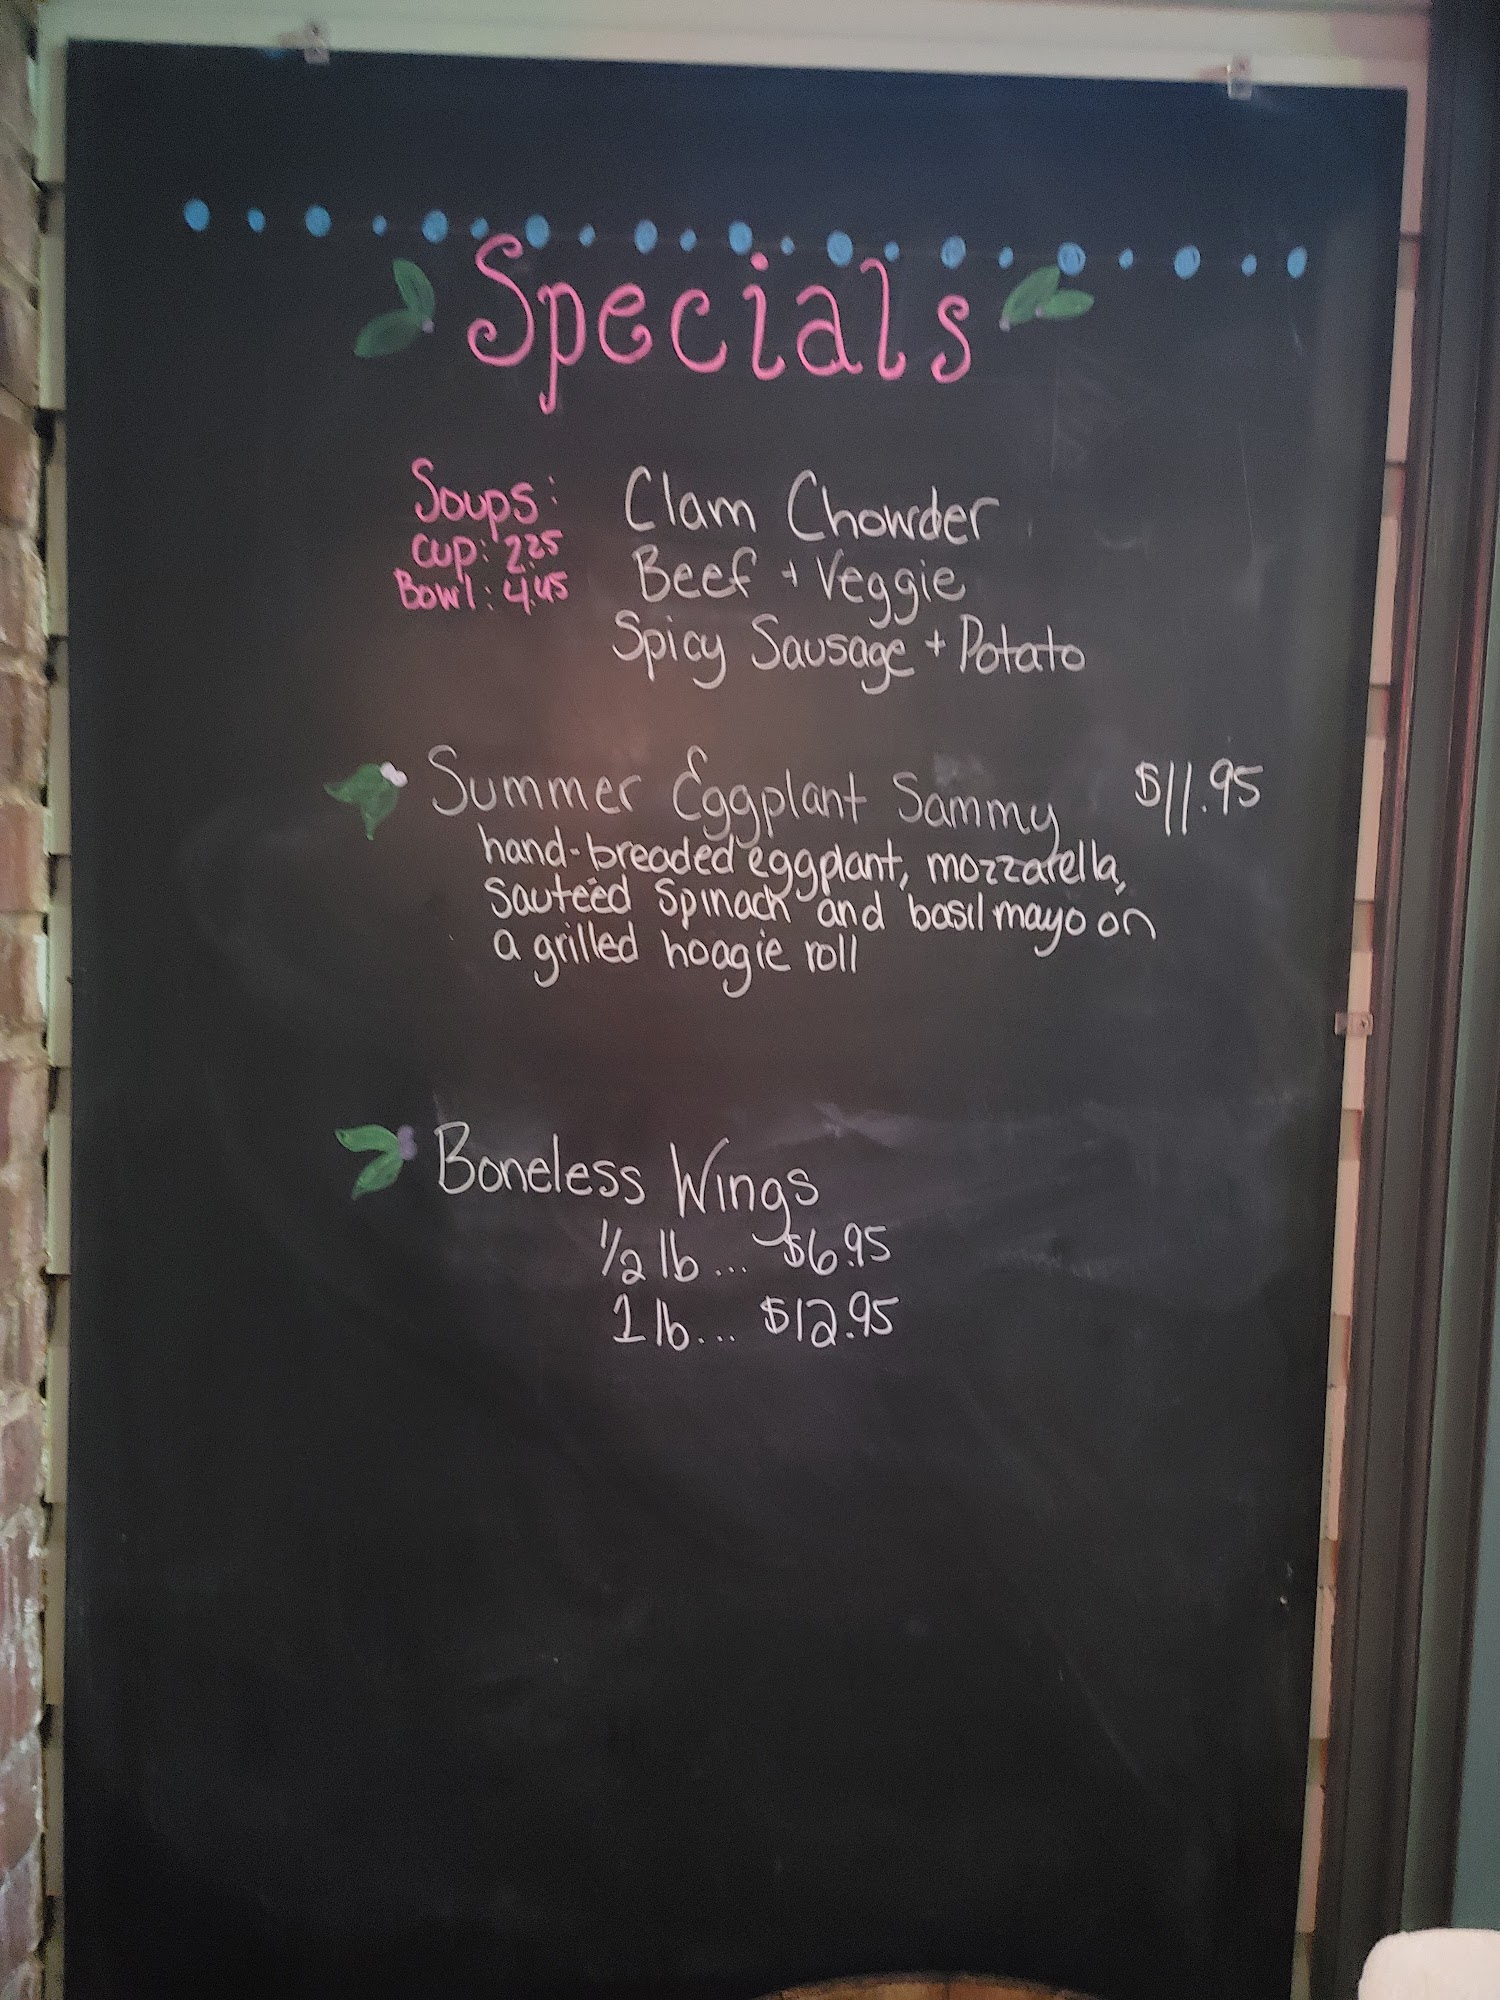 Specials
Soups: Clam Chowder
Cup: 2.25 Beef + Veggie
Bowl: 4.45 Spicy Sausage + Potato
Summer Eggplant Sammy $11.95
hand-breaded eggplant, mozzarella,
sautéed spinach and basil mayo on
a grilled hoagie roll
Boneless Wings
1/2 lb... $6.95
1 lb... $12.95